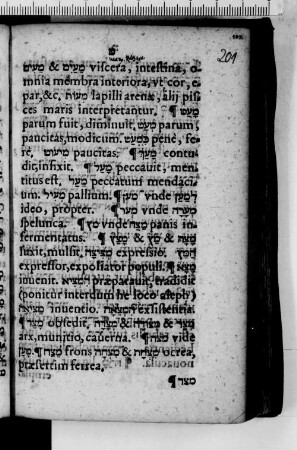 מ
201
מעים & מעים viscera, intestina, o-
mnia membra interiora, vt cor, e-
par, &c, מעות lapilli arenæ, alij pis-
ces maris interpretantur. ¶ מעט
parum fuit, diminuit, מעט parum,
paucitas, modicum. כמעט penè, fe-
rè, מיעוט paucitas. ¶ מעך contu-
dit, infixit. ¶ מעל peccauit, men-
titus est, מעל peccatum mendaci-
um. מעיל pallium. ¶ מען vnde למען
ideo, propter. ¶ מער vnde מערה
spelunca. ¶ מץ vnde מצה panis in-
fermentatus. ¶ מצץ & מץ & מצה
suxit, mulsit, expressio. מץ
expressor, expoliator populi. ¶ מצא
inuenit. המציא præparauit, tradidit
(ponitur interdum he loco aleph)
מציאה inuentio. existentia.
¶ מצור obsedit, מצור & מצורה &
arx, munitio, cauerna. ¶ מצה vide
¶ מצח frons & מצחה ocrea,
præsertim ferrea,
¶ מצר